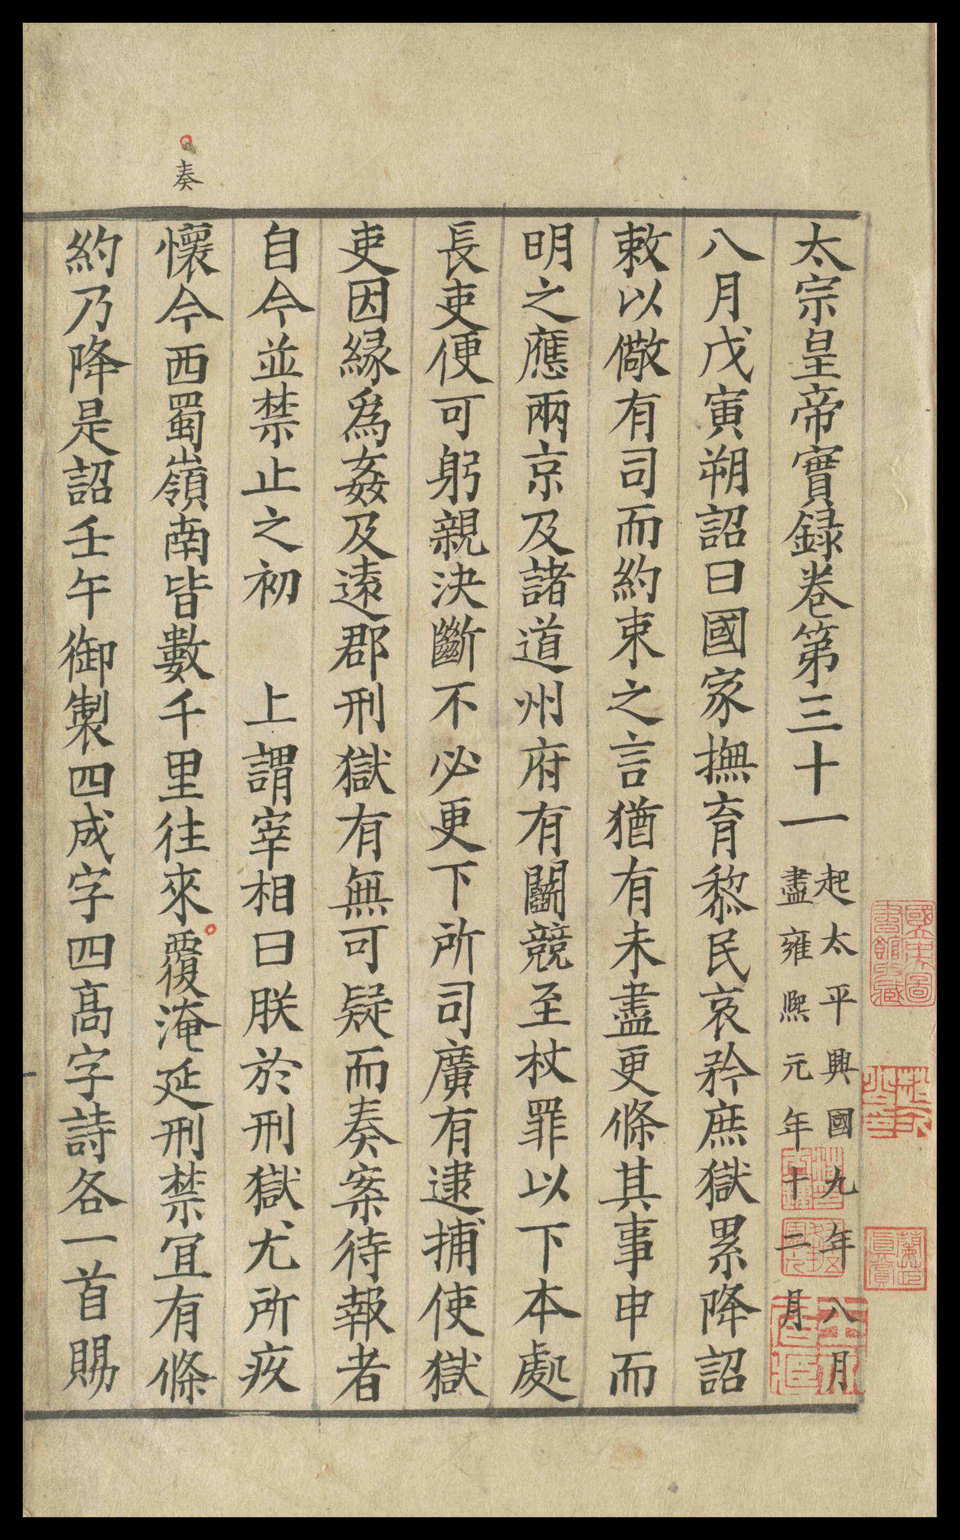 太宗皇帝實録卷第三十一 起太平興國九年八月盡雍熙元年十二月
八月戊寅朔詔曰國家撫育黎民哀矜庶獄累降詔
敕以儆有司而約束之言猶有未盡更條其事申而
明之應兩京及諸道州府有鬭競至杖罪以下本處
長吏便可躬親決斷不必更下所司廣有逮捕使獄
吏因緣爲姦及遠郡刑獄有無可疑而奏案待報者
自今並禁止之初 上謂宰相曰朕於刑獄尤所疚
懷今西蜀嶺南皆數千里往來覆淹延刑禁冝有條
約乃降是詔壬午御製四成字四高字詩各一首賜
奏
國立中央圖書館收藏